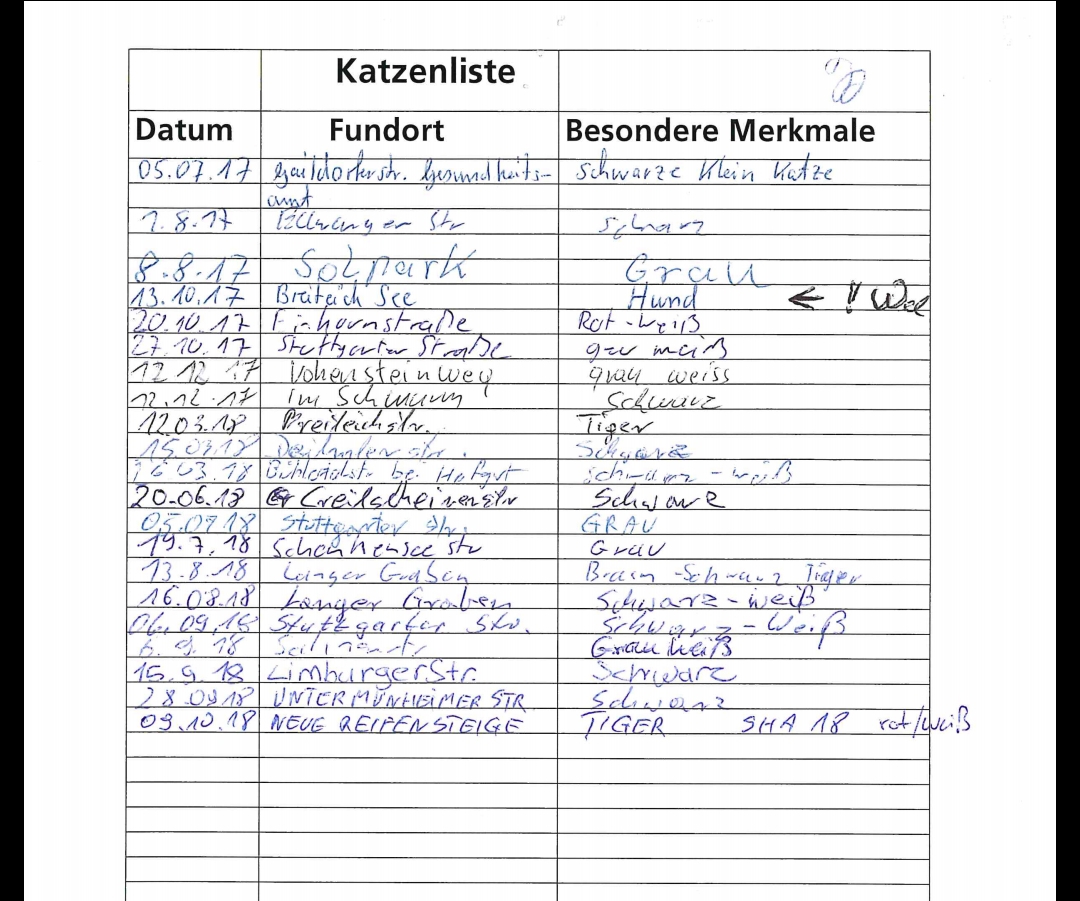 Katzenliste
Datum Fundort Besondere Merkmale
05.07.17 Gaildorferstr. Gesundheits- schwarze Klein Katze
amt
1.8.17 Ellwanger Str schwarz
8.8.17 Solpark Grau
13.10.17 Breiteich See Hund ← !
20.10.17 Einhornstraße Rot-weiß
27.10.17 Stuttgarter Straße
12 12 17 Vohensteinweg grau weiss
12.12.17 im Schwarz
12.03.18 Breiteichstr. Tiger
15.03.18 str. Schwarz
16 03.18 Bühlertalstr. bei Hofgut schwarz-weiß
20-06.18 Schwarz
05.07 18 Stuttgarter Str. GRAU
19.7.18 Schenkensee str Grau
13.8.18 Langer Graben Braun-Schwarz Tiger
16.08.18 Langer Graben Schwarz-weiß
06.09.18 Stuttgarter Str. Schwarz-Weiß
6.9.18 Grau Weiß
15.9.18 Limburger Str. Schwarz
28.09.18 UNTERMÜNHEIMER STR Schwarz
09.10.18 NEUE REIFENSTEIGE TIGER SHA 18 rot/weiß